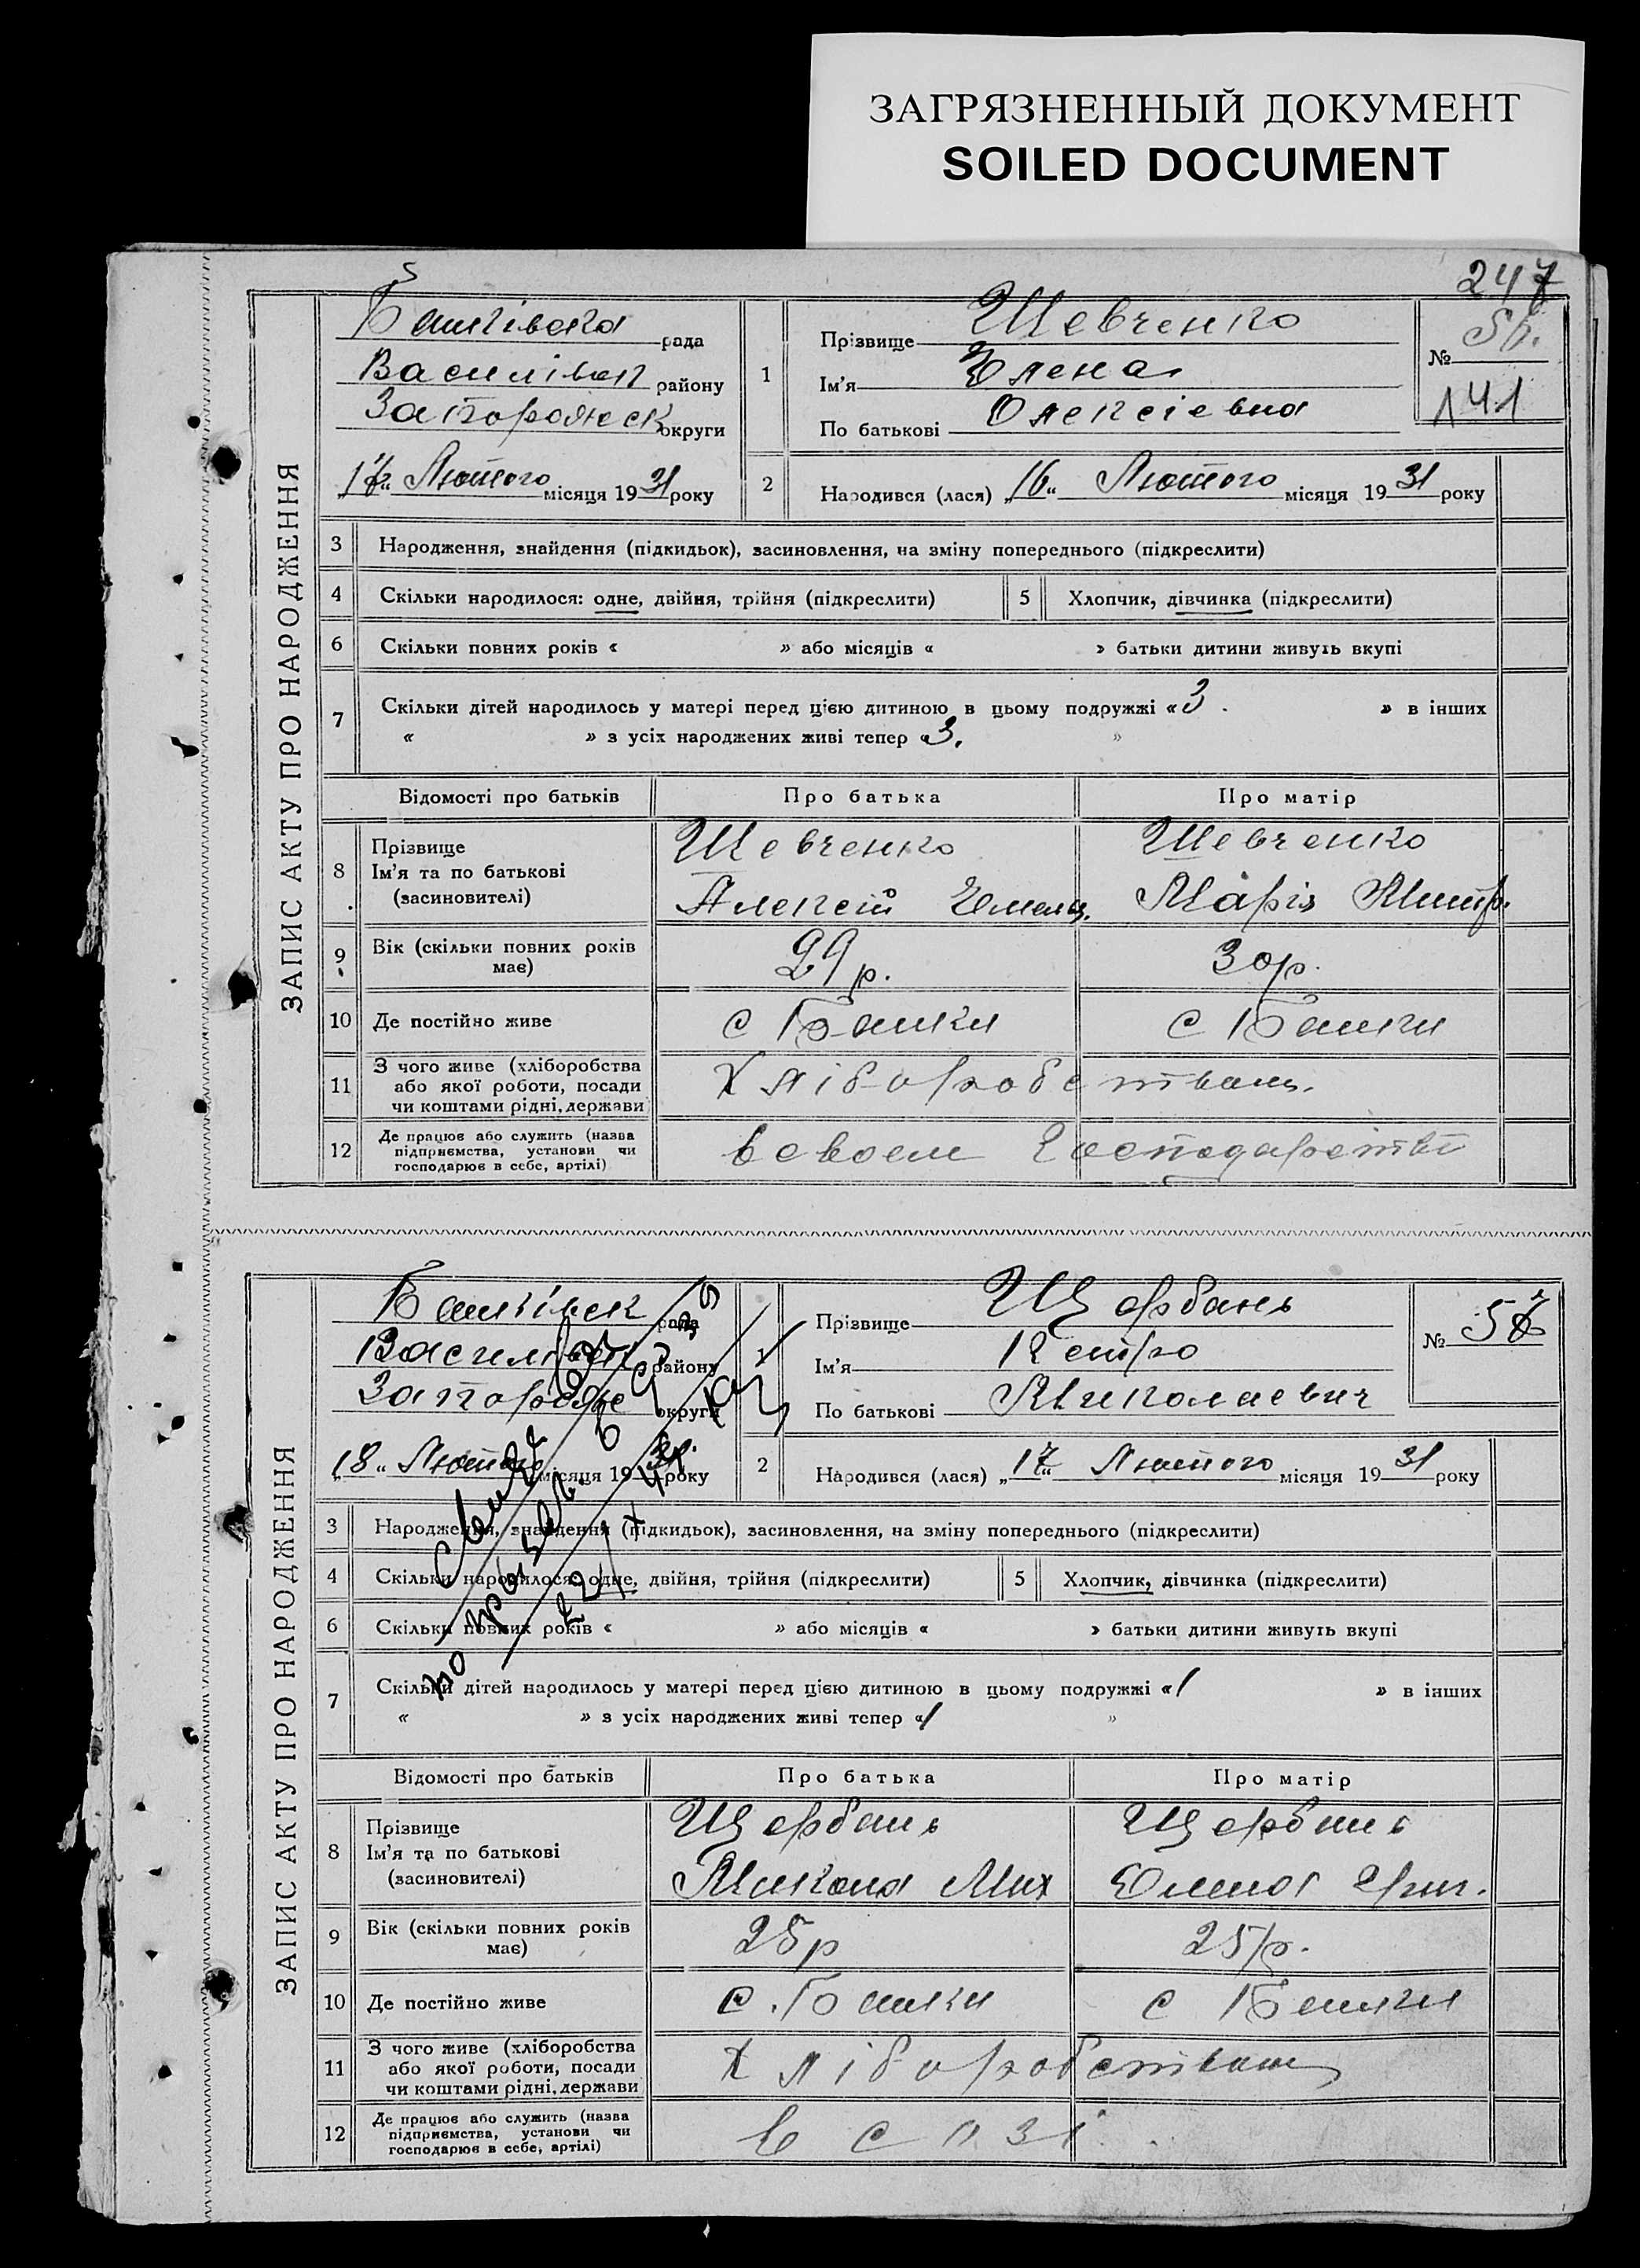 ЗАГРЯЗНЕННЫЙ ДОКУМЕНТ
SOILED DOCUMENT
247
ЗАПИС АКТУ ПРО НАРОДЖЕННЯ
рада
Василівск району
Запорожск округи
Лютого місяця 1931 року
1
Прізвище Шевченко
Ім'я Элена
По батькові Олексіевна
№
141
2
Народився (лася) „16“ Лютого місяця 1931 року
3 Народження, знайдення (підкидьок), засиновлення, на зміну попереднього (підкреслити)
4 Скільки народилося: одне, двійня, трійня (підкреслити) 5 Хлопчик, дівчинка (підкреслити)
6 Скільки повних років « » або місяців « » батьки дитини живуть вкупі
7 Скільки дітей народилось у матері перед цією дитиною в цьому подружжі «3. » в інших
« » з усіх народжених живі тепер «3. »
Відомості про батьків Про батька Про матір
8 Прізвище Ім'я та по батькові (засновителі)
Шевченко Шевченко
Алексей Емельян. Марія Дмитр.
9 Вік (скільки повних років має) 29 р. 30 р.
10 Де постійно живе с Башки с Башки
11 З чого живе (хліборобства або якої роботи, посади чи коштами рідні, держави Хліборобством
12 Де працює або служить (назва підприємства, установи чи господарює в себе, артілі) в своем Господарстві
ЗАПИС АКТУ ПРО НАРОДЖЕННЯ
рада
району
округи
„18“ Лютого місяця 19 року
1
Прізвище Щербань
Ім'я Петро
По батькові Миколаевич
№ 57
2
Народився (лася) „17“ Лютого місяця 1931 року
3 Народження, знайдення (підкидьок), засиновлення, на зміну попереднього (підкреслити)
4 Скільки народилося: одне, двійня, трійня (підкреслити) 5 Хлопчик, дівчинка (підкреслити)
6 Скільки повних років « » або місяців « » батьки дитини живуть вкупі
7 Скільки дітей народилось у матері перед цією дитиною в цьому подружжі «1 » в інших
« » з усіх народжених живі тепер «1 »
Відомості про батьків Про батька Про матір
8 Прізвище Ім'я та по батькові (засиновителі)
Щербань Щербань
Микола Мих Григ.
9 Вік (скільки повних років має) 25 р 25 р.
10 Де постійно живе с. Башки с Башки
11 З чого живе (хліборобства або якої роботи, посади чи коштами рідні, держави Хліборобством
12 Де працює або служить (назва підприємства, установи чи господарює в себе, артілі) в созі